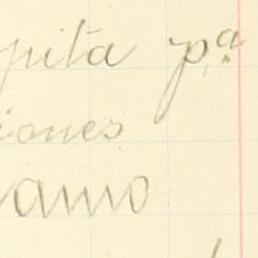 pita pª
iones
amo